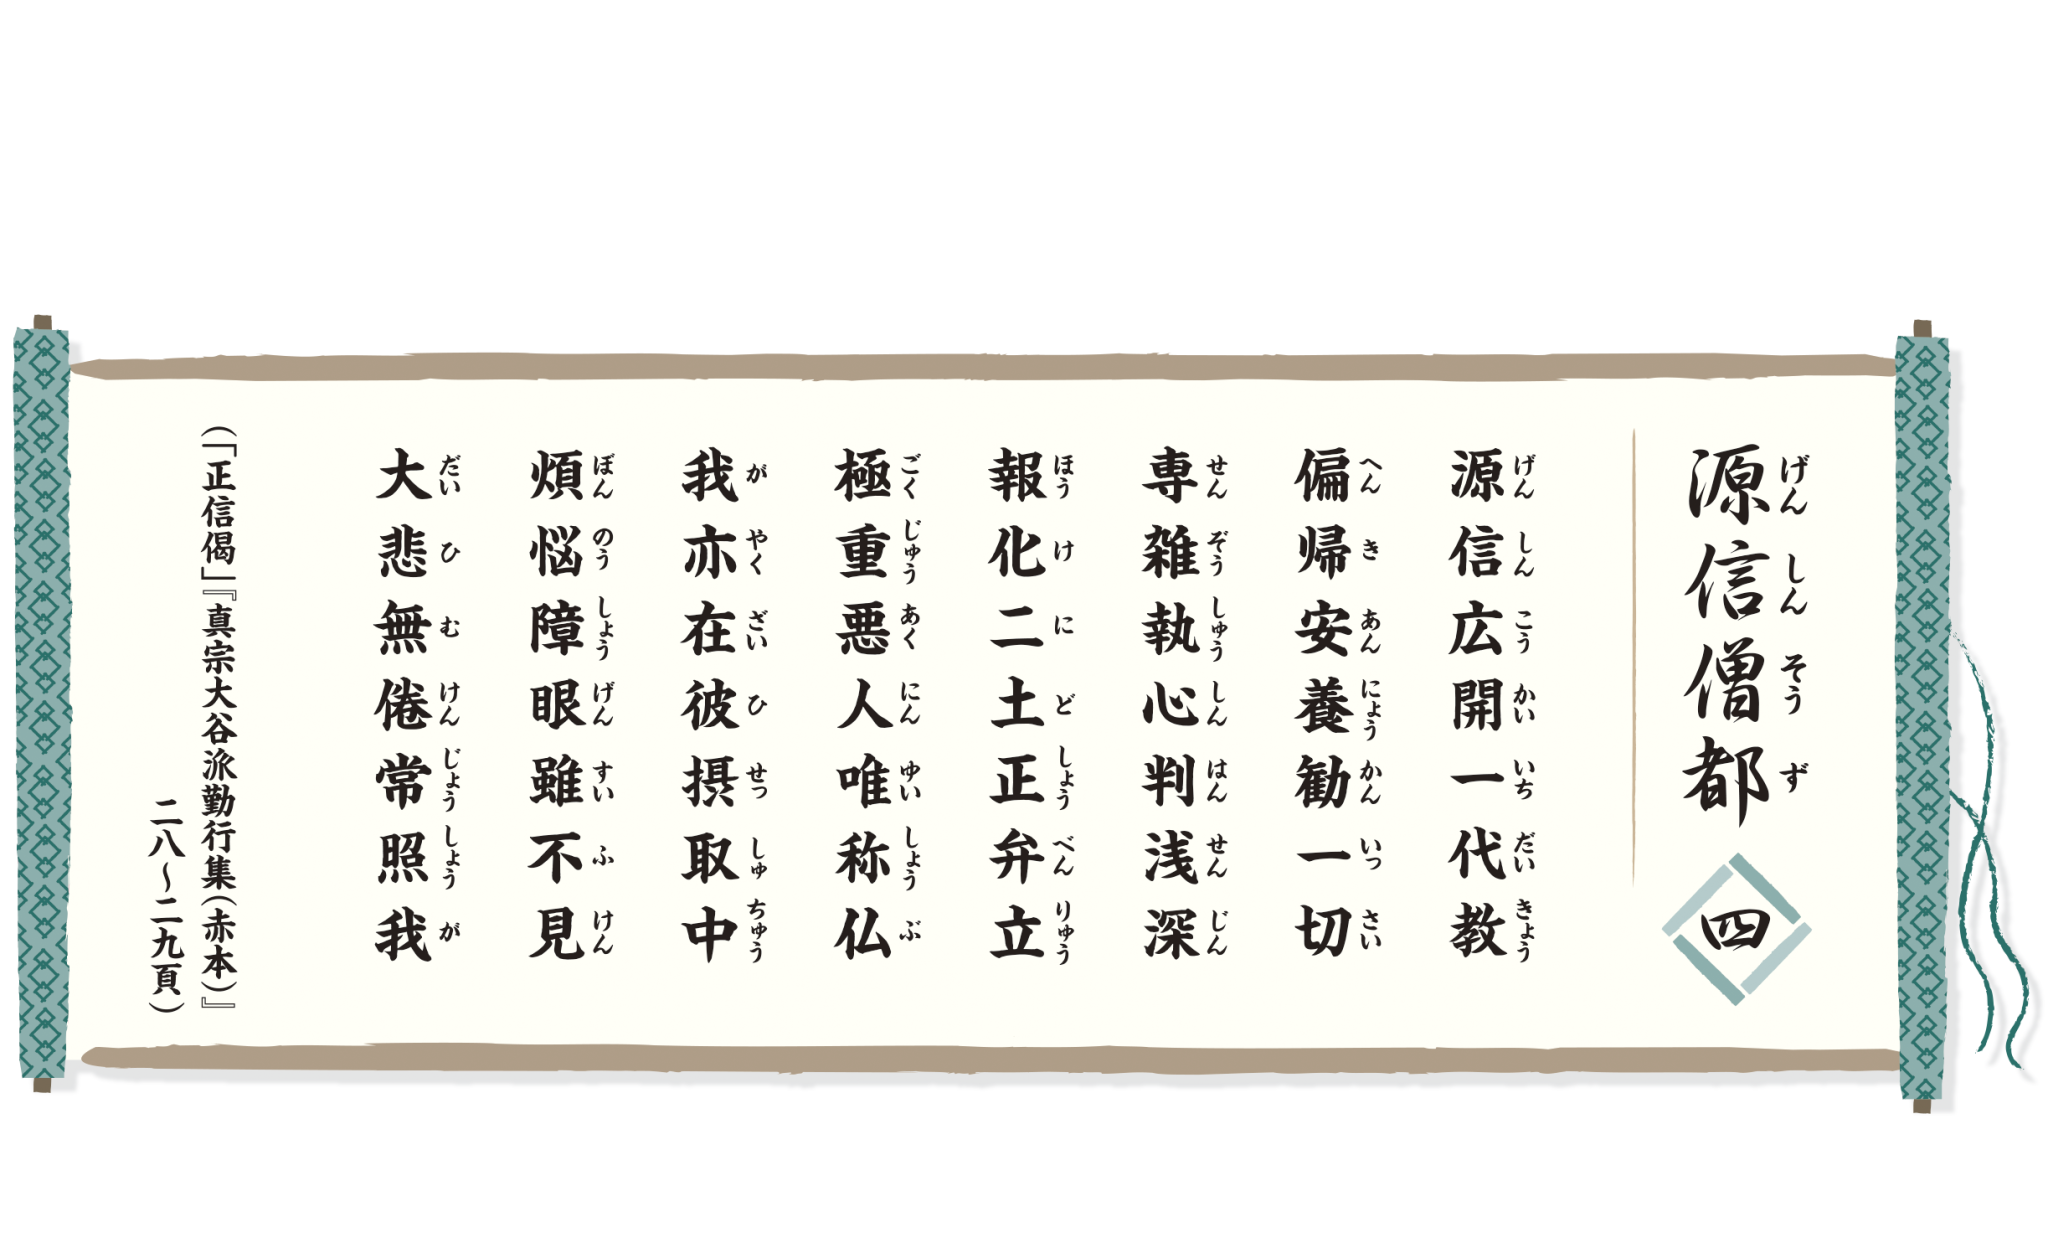 源信僧都 四
げんしんそうず
源信広開一代教
げんしんこうかいいちだいきょう
偏帰安養勧一切
へんきあんにょうかんいっさい
専雑執心判浅深
せんぞうしゅうしんはんせんじん
報化二土正弁立
ほうけにどしょうべんりゅう
極重悪人唯称仏
ごくじゅうあくにんゆいしょうぶ
我亦在彼摂取中
がやくざいひせっしゅちゅう
煩悩障眼雖不見
ぼんのうしょうげんすいふけん
大悲無倦常照我
だいひむけんじょうしょうが
(「正信偈」『真宗大谷派勤行集(赤本)』
二八〜二九頁)